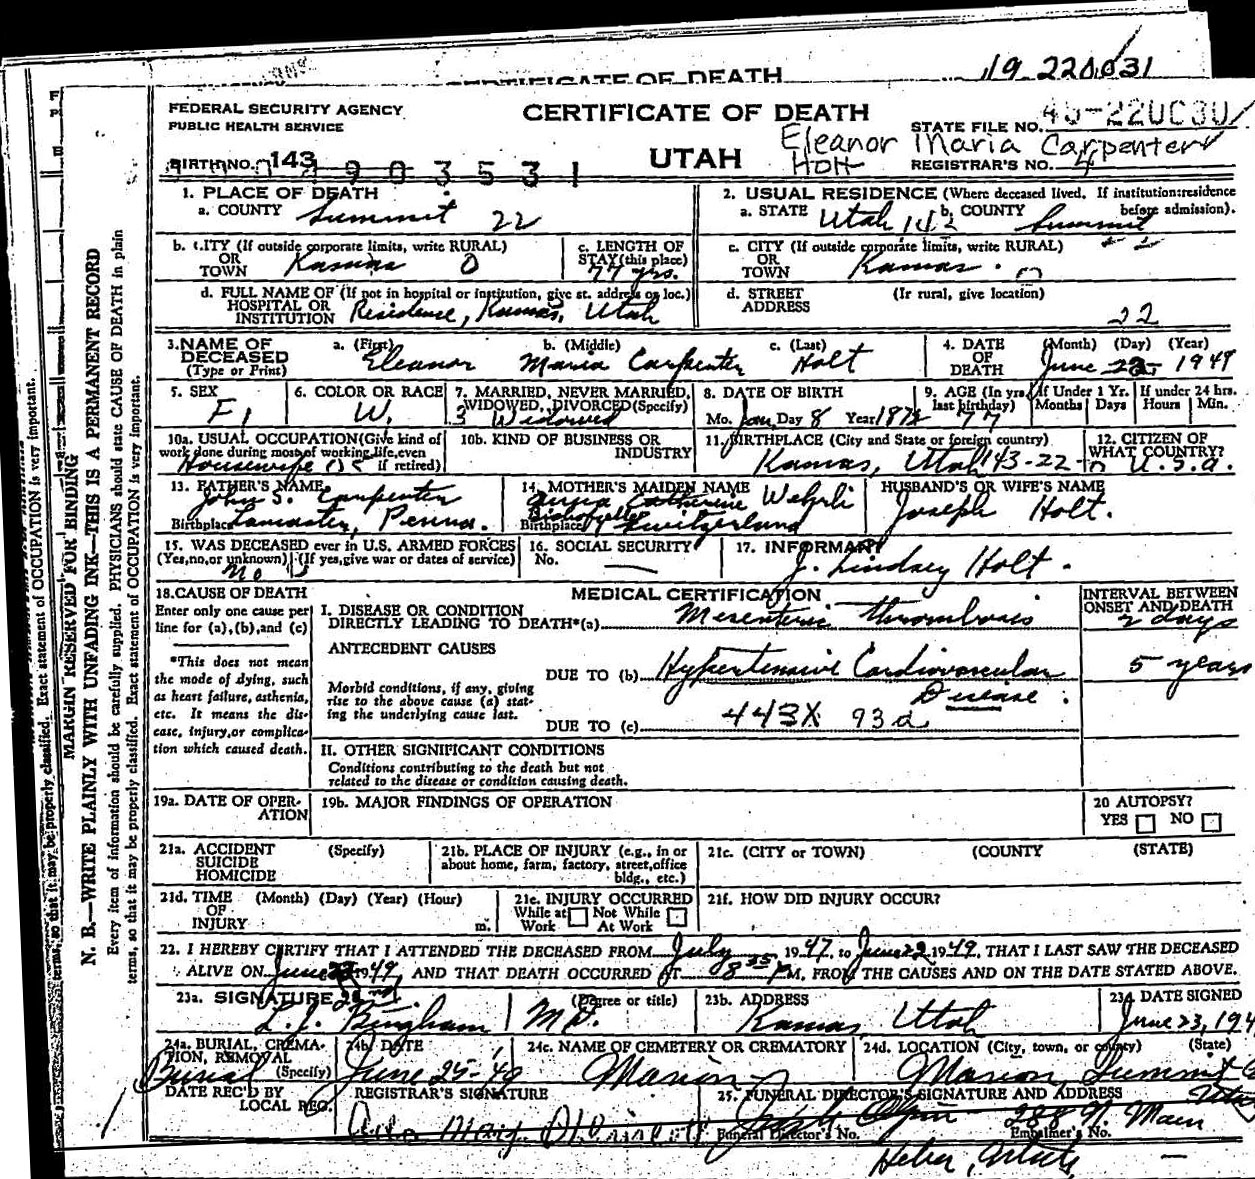 CERTIFICATE OF DEATH
19 220031
FEDERAL SECURITY AGENCY
PUBLIC HEALTH SERVICE
CERTIFICATE OF DEATH
STATE FILE NO.
Eleanor Maria Carpenter
Holt
UTAH
REGISTRAR'S NO. 4
BIRTH NO. 143
903531
1. PLACE OF DEATH
a. COUNTY Summit 22
2. USUAL RESIDENCE (Where deceased lived. If institution:residence before admission).
a. STATE Utah 143 b. COUNTY Summit
b. CITY (If outside corporate limits, write RURAL)
OR
TOWN Kamas 0
c. LENGTH OF
STAY(this place)
77 yrs.
c. CITY (If outside corporate limits, write RURAL)
OR
TOWN Kamas.
d. FULL NAME OF (If not in hospital or institution, give st. address or loc.)
HOSPITAL OR
INSTITUTION Residence, Kamas, Utah
d. STREET (If rural, give location)
ADDRESS
22
3. NAME OF
DECEASED
(Type or Print)
a. (First) Eleanor
b. (Middle) Maria Carpenter
c. (Last) Holt
4. DATE
OF
DEATH
(Month) (Day) (Year)
June 22 1949
5. SEX
F.
6. COLOR OR RACE
W.
7. MARRIED, NEVER MARRIED,
WIDOWED, DIVORCED(Specify)
3 Widowed
8. DATE OF BIRTH
Mo. Jan Day 8 Year 1872
9. AGE (In yrs. last birthday)
77
If Under 1 Yr.
Months Days
If under 24 hrs.
Hours Min.
10a. USUAL OCCUPATION(Give kind of
work done during most of working life, even
if retired)
Housewife
10b. KIND OF BUSINESS OR
INDUSTRY
11. BIRTHPLACE (City and State or foreign country)
Kamas, Utah 143-22-0
12. CITIZEN OF
WHAT COUNTRY?
U.S.A.
13. FATHER'S NAME
John S. Carpenter
Birthplace Lancaster, Penna.
14. MOTHER'S MAIDEN NAME
Anna Catherine Wehrli
Birthplace Switzerland
HUSBAND'S OR WIFE'S NAME
Joseph Holt.
15. WAS DECEASED ever in U.S. ARMED FORCES
(Yes,no,or unknown) (If yes,give war or dates of service)
No
16. SOCIAL SECURITY
No. —
17. INFORMANT
J. Lindsey Holt.
18. CAUSE OF DEATH
Enter only one cause per
line for (a),(b),and (c)
*This does not mean
the mode of dying, such
as heart failure, asthenia,
etc. It means the dis-
ease, injury,or complica-
tion which caused death.
MEDICAL CERTIFICATION
INTERVAL BETWEEN
ONSET AND DEATH
I. DISEASE OR CONDITION
DIRECTLY LEADING TO DEATH*(a) Mesenteric thrombosis
2 days
ANTECEDENT CAUSES
DUE TO (b) Hypertensive Cardiovascular
Disease.
5 years
Morbid conditions, if any, giving
rise to the above cause (a) stat-
ing the underlying cause last.
DUE TO (c) 443X 93d
II. OTHER SIGNIFICANT CONDITIONS
Conditions contributing to the death but not
related to the disease or condition causing death.
19a. DATE OF OPER-
ATION
19b. MAJOR FINDINGS OF OPERATION
20 AUTOPSY?
YES NO
21a. ACCIDENT (Specify)
SUICIDE
HOMICIDE
21b. PLACE OF INJURY (e.g., in or
about home, farm, factory, street,office
bldg., etc.)
21c. (CITY or TOWN) (COUNTY) (STATE)
21d. TIME (Month) (Day) (Year) (Hour)
OF
INJURY m.
21e. INJURY OCCURRED
While at Not While
Work At Work
21f. HOW DID INJURY OCCUR?
22. I HEREBY CERTIFY THAT I ATTENDED THE DECEASED FROM July 1947, to June 22, 1949, THAT I LAST SAW THE DECEASED
ALIVE ON June 22 1949, AND THAT DEATH OCCURRED AT 8 35 P M, FROM THE CAUSES AND ON THE DATE STATED ABOVE.
23a. SIGNATURE
L. J. Bingham
(Degree or title)
M.D.
23b. ADDRESS
Kamas Utah
DATE SIGNED
June 23, 194
24a. BURIAL, CREMA-
TION, REMOVAL
(Specify)
Burial
24b. DATE
June 25-49
24c. NAME OF CEMETERY OR CREMATORY
Marion
24d. LOCATION (City, town, or county) (State)
Marion, Summit Co
Utah
DATE REC'D BY
LOCAL REG.
REGISTRAR'S SIGNATURE
25. FUNERAL DIRECTOR'S SIGNATURE AND ADDRESS
288 N. Main
Funeral Director's No.
Embalmer's No.
Heber,
N. B.—WRITE PLAINLY WITH UNFADING INK—THIS IS A PERMANENT RECORD
MARGIN RESERVED FOR BINDING
Every item of information should be carefully supplied. PHYSICIANS should state CAUSE OF DEATH in plain
terms, so that it may be properly classified. Exact statement of OCCUPATION is very important.